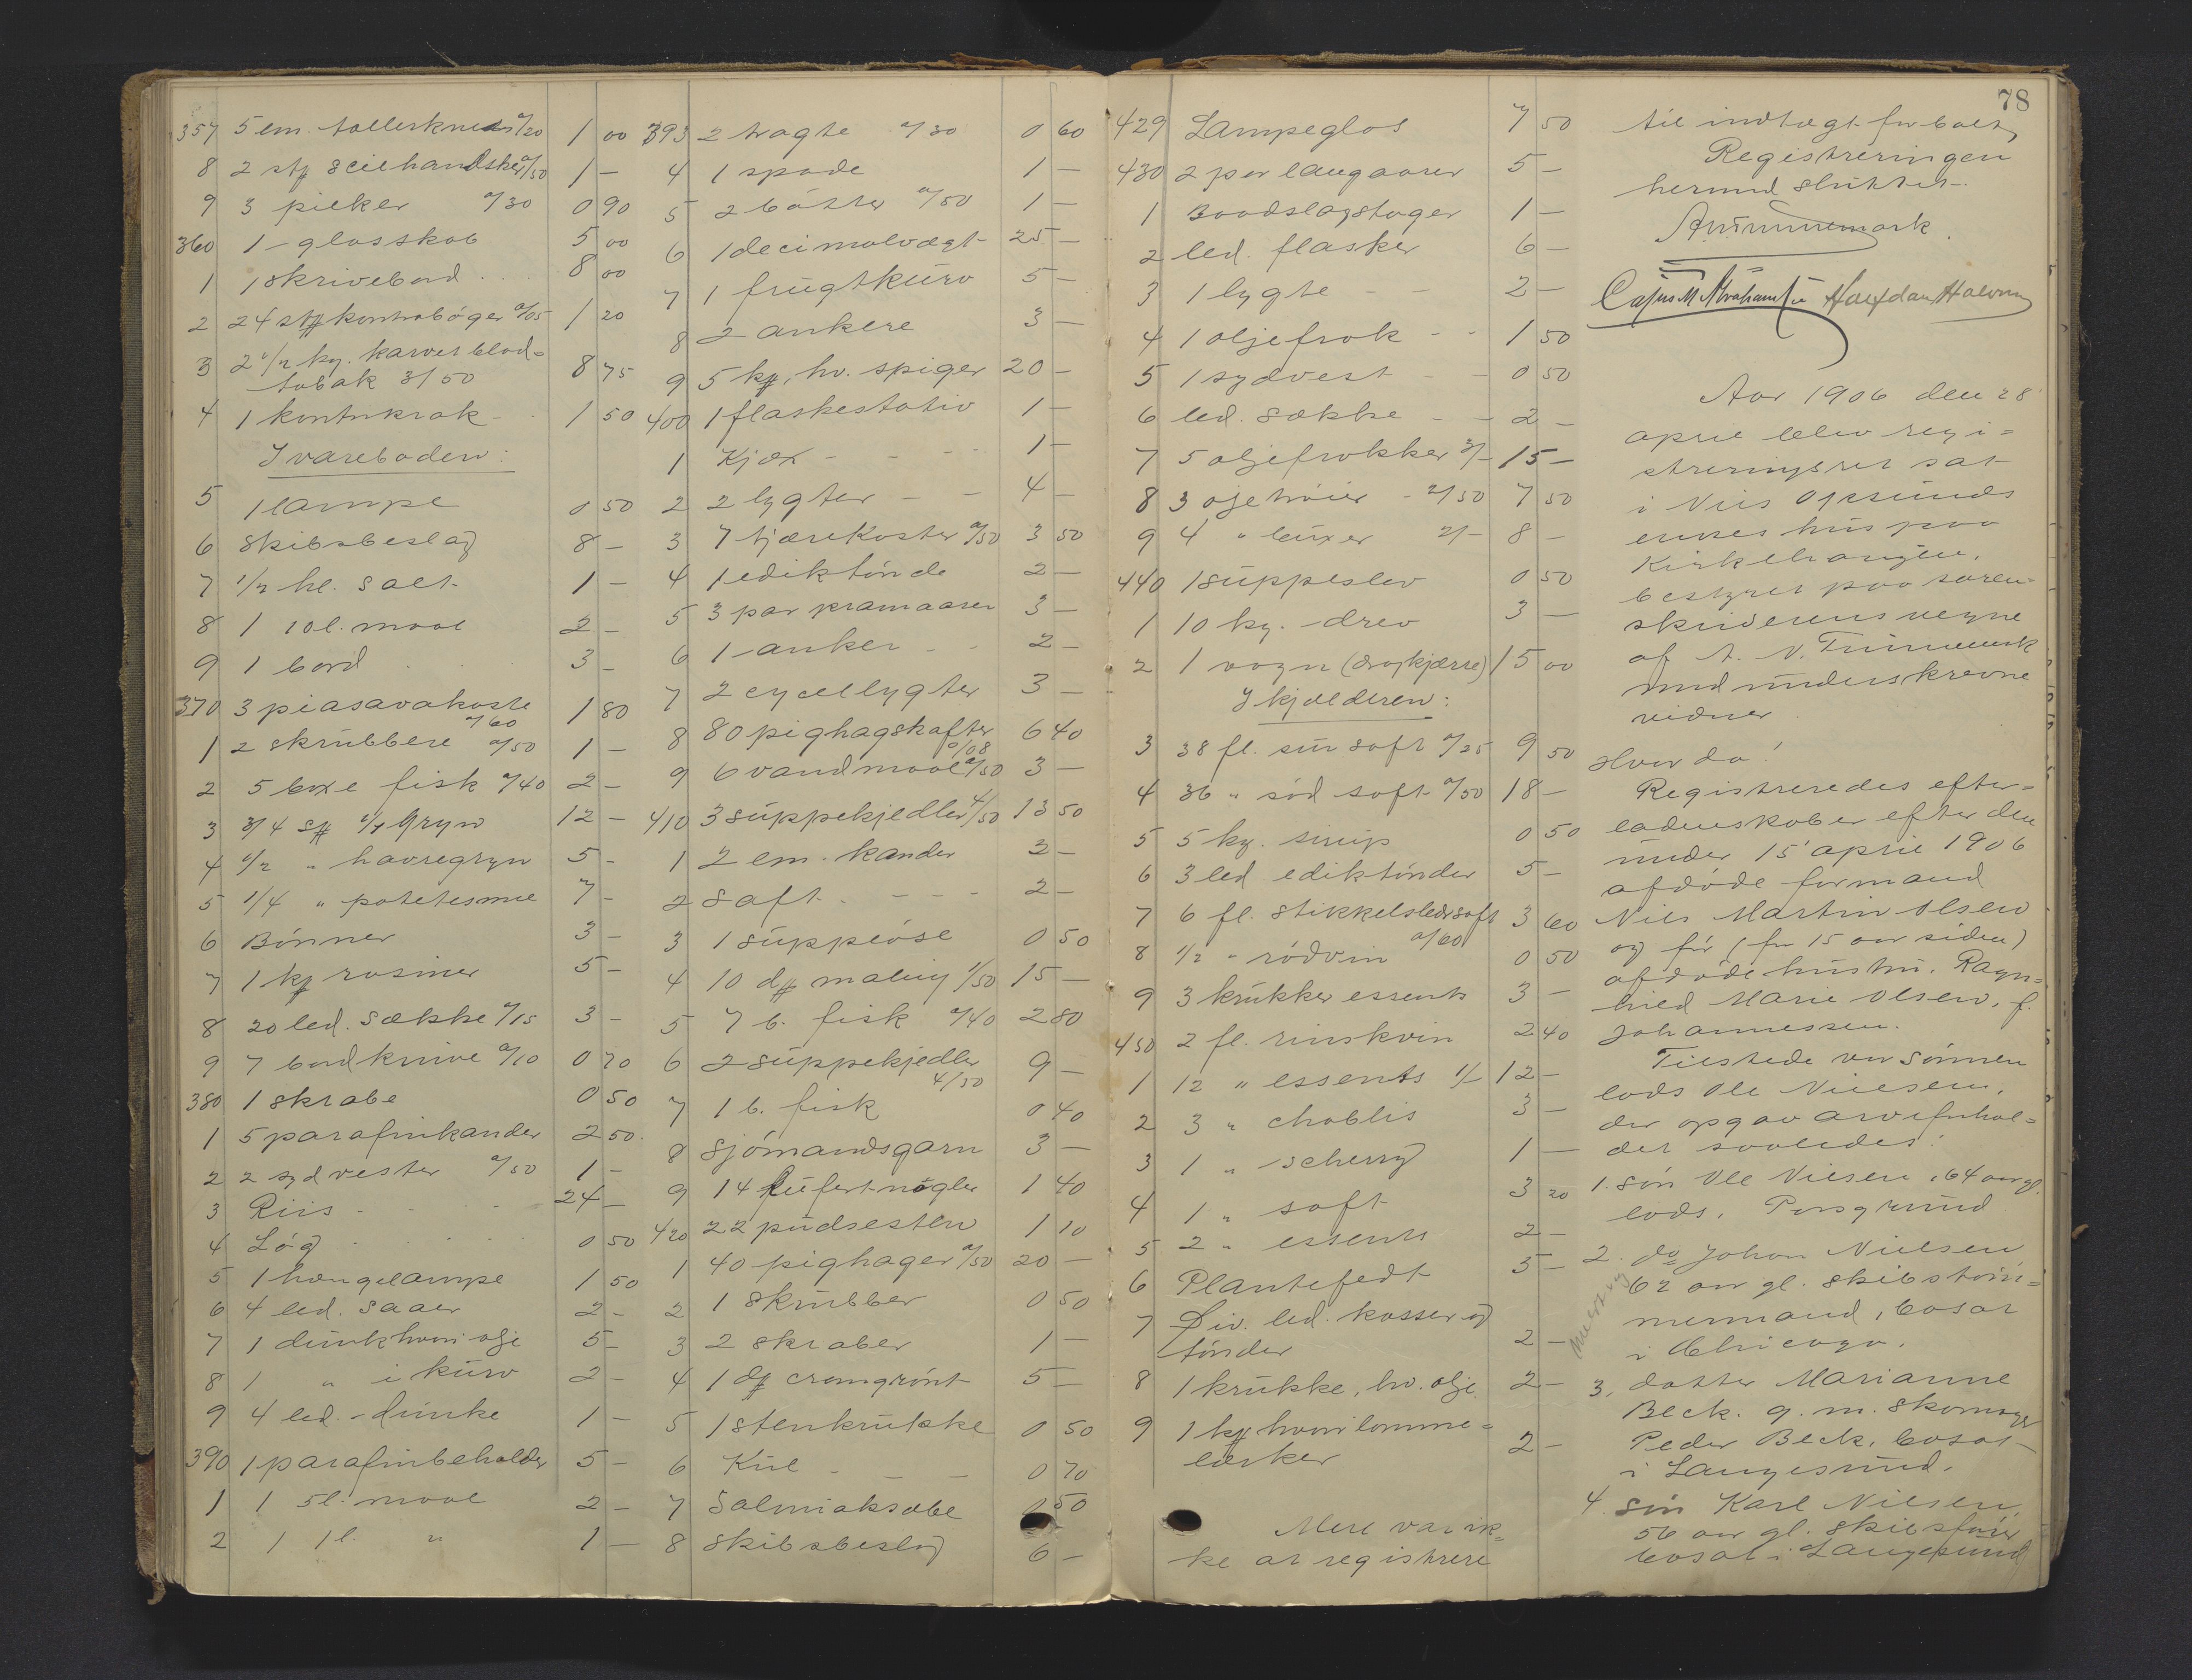 357 5 em. tallerkner a/20 1 00
8 2 stk seilhandsker a/50 1 -
9 3 pilker a/30 0 90
360 1 glasskab 5 00
1 1 skrivebord 8 00
2 24 stk kontrabøger a/05 1 20
3 2 1/2 kg. karvet blad=
tobak 3/50 8 75
4 1 kontorkrak - 1 50
I vareboden:
5 1 lampe 0 50
6 Skibsbeslag 8 -
7 1/2 hl. salt 1 -
8 1 10 l. maal 2 -
9 1 bord 3 -
370 3 piasavakoste
a/60 1 80
1 2 skrubbere a/50 1 -
2 5 boxe fisk a/40 2 -
3 3/4 sk 1/1 Gryn 12 -
4 1/2 " havregryn 5 -
5 1/4 " potetesmel 7 -
6 Bønner 3 -
7 1 kg rosiner 5 -
8 20 led. sække a/15 3 -
9 7 bordknive a/10 0 70
380 1 skrabe 0 50
1 5 parafinkander 2 50
2 2 sydvester a/50 1 -
3 Riis 24 -
4 Løg 0 50
5 1 hængelampe 1 50
6 4 led. saaer 2 -
7 1 dunk hvm olje 5 -
8 1 " i kurv 2 -
9 4 led. dunke 1 -
390 1 parafinbeholder 5 -
1 1 5 l. maal 2 -
2 1 1 l. " 1 -
393 2 tragte a/30 0 60
4 1 spade 1 -
5 2 bøtter a/50 1 -
6 1 decimalvægt 25 -
7 1 frugtkurv 5 -
8 2 ankere 3 -
9 5 kg. hv. spiger 20 -
400 1 flaskestativ 1 -
1 Kjæx - - - 1 -
2 2 lygter - - 4 -
3 7 tjærekoster a/50 3 50
4 1 ediktønde 2 -
5 3 par pramaarer 3 -
6 1 anker - - 2 -
7 2 cycellygter 3 -
8 80 pighagskafter
a/08 6 40
9 6 vandmaal a/50 3 -
410 3 suppekjedler 4/50 13 50
1 2 em. kander 2 -
2 Saft - - - 2 -
3 1 suppeøse 0 50
4 10 dk maling 1/50 15 -
5 7 b. fisk a/40 2 80
6 2 suppekjedler
4/50 9 -
7 1 b. fisk 0 40
8 Sjømandsgarn 3 -
9 14 kufertnøgler 1 40
420 22 pudsesten 1 10
1 40 pighager a/50 20 -
2 1 skrubber 0 50
3 2 skraber 1 -
4 1 dk cromgrønt 5 -
5 1 stenkrukke 0 50
6 Kul - - - 0 70
7 Salmiaksæbe 50
8 Skibsbeslag 6 -
78
429 Lampeglas 7 50
430 2 par langaarer 5 -
1 Baadslagstager 1 -
2 led. flasker 6 -
3 1 lygte - - 2 -
4 1 oljefrak - - 1 50
5 1 sydvest - - 0 50
6 led. sække - - 2 -
7 5 oljefrakker 3/- 15 -
8 3 oljetrøier - 2/50 7 50
9 4 " buxer 2/- 8 -
440 1 suppeslev 0 50
1 10 kg. drev 3 -
2 1 vogn (dragkjærre) 15 00
I kjælderen:
3 38 fl. sur saft a/25 9 50
4 36 " sød saft a/50 18 -
5 5 kg. sirup 0 50
6 3 led ediktønder 5 -
7 6 fl. stikkelsbærsaft
a/60 3 60
8 1/2 " rødvin 0 50
9 3 krukker essents 3 -
450 2 fl. rinskvin 2 40
1 12 " essents 1/- 12 -
2 3 " chablis 3 -
3 1 " scherry 1 -
4 1 " saft 3 20
5 2 " essents 2 -
6 Plantefedt 5 -
7 Div. led. kasser og
tønder 2 -
8 1 krukke, hv. olje 2 -
9 1 kg hvm lomme=
lærker 2 -
Mere var ik=
ke at registrere
til indtægt for boet,
Registreringen
hermed sluttet.
Halfdan Halvorsen
Aar 1906 den 28
april blev regi=
streringsret sat
i Nils Opsunds
enkes hus paa
Kirkehaugen,
bestyret paa soren=
skriverens vegne
af A. N. Trinnemark
med underskrevne
vidner.
Hvor da!
Registreredes efter=
ladenskaber efter den
under 15 april 1906
afdøde formand
Nils Martin Olsen
og før (for 15 aar siden)
afdøde hustru, Ragn=
hild Marie Olsen, f.
Johannessen.
Tilstede var sønnen
lods Ole Nielsen,
der opgav arveforhol=
det saaledes:
1. søn Ole Nilsen, 64 aar gl.
lods, Porsgrund
2. do Johan Nielsen
62 aar gl. skibstøm=
mermand, bosat
i Chicago.
3. datter Marianne
Beck. g. m. skomager
Peder Beck, bosat
i Langesund.
4. søn Karl Nilsen,
56 aar gl. skibsfører
bosat i Langesund